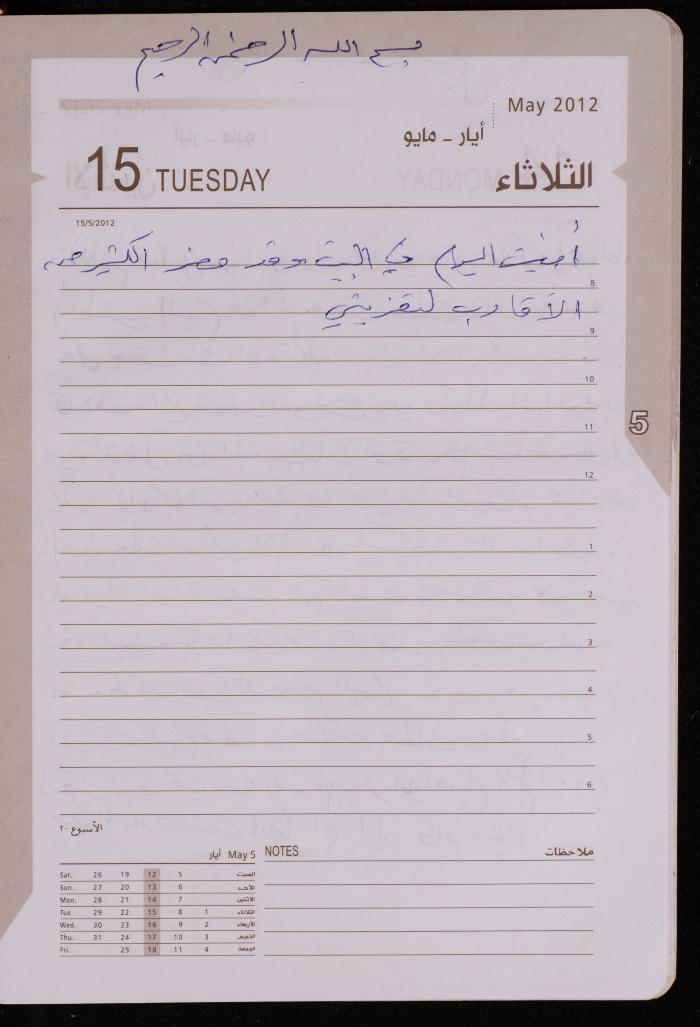 بسم الله الرحمن الرحيم
May 2012
أيار - مايو
15 TUESDAY
الثلاثاء
15/5/2012
أمضيت اليوم في البيت وقد حضر الكثير من
8
الأقارب لتعزيتي
9
10
11
12
1
2
3
4
5
6
5
الأسبوع ٢٠
أيار May 5
Sat. 26 19 12 5 السبت
Sun. 27 20 13 6 الأحد
Mon. 28 21 14 7 الاثنين
Tue. 29 22 15 8 1 الثلاثاء
Wed. 30 23 16 9 2 الأربعاء
Thu. 31 24 17 10 3 الخميس
Fri. 25 18 11 4 الجمعة
NOTES ملاحظات